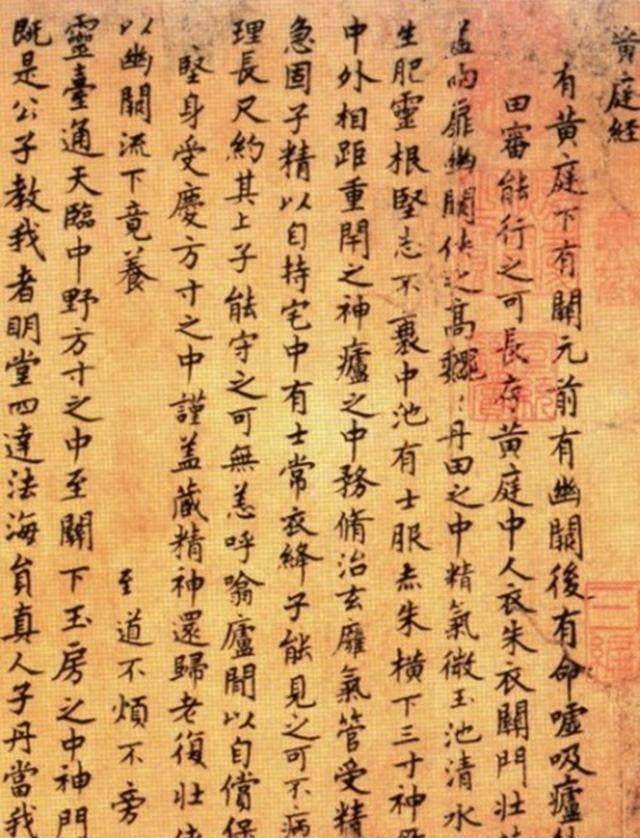 黄庭経
有黄庭下有關元前有幽闕後有命噓吸廬
田審能行之可長存黄庭中人衣朱衣關門壯
盖兩扉幽闕侠之髙巍〻丹田之中精氣微玉池清水
生肥靈根堅志不衰中池有士服赤朱横下三寸神
中外相距重閉之神廬之中務脩治玄廱氣管受精
急固子精以自持宅中有士常衣絳子能見之可不病
理長尺約其上子能守之可無恙呼噏廬間以自償保
堅身受慶方寸之中謹盖藏精神還歸老復壯
以幽闕流下竟養 至道不煩不旁
靈臺通天臨中野方寸之中至關下玉房之中神門
既是公子教我者明堂四達法海員真人子丹當我